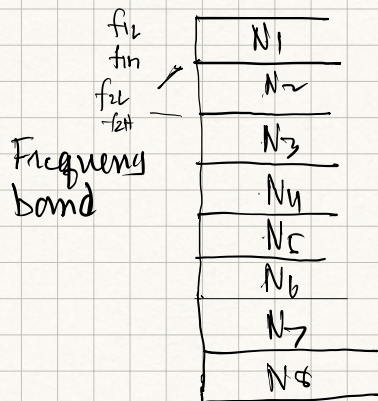 f1L
f1H
f2L
f2H
Frequeny
band
N1
N2
N3
N4
N5
N6
N7
N8